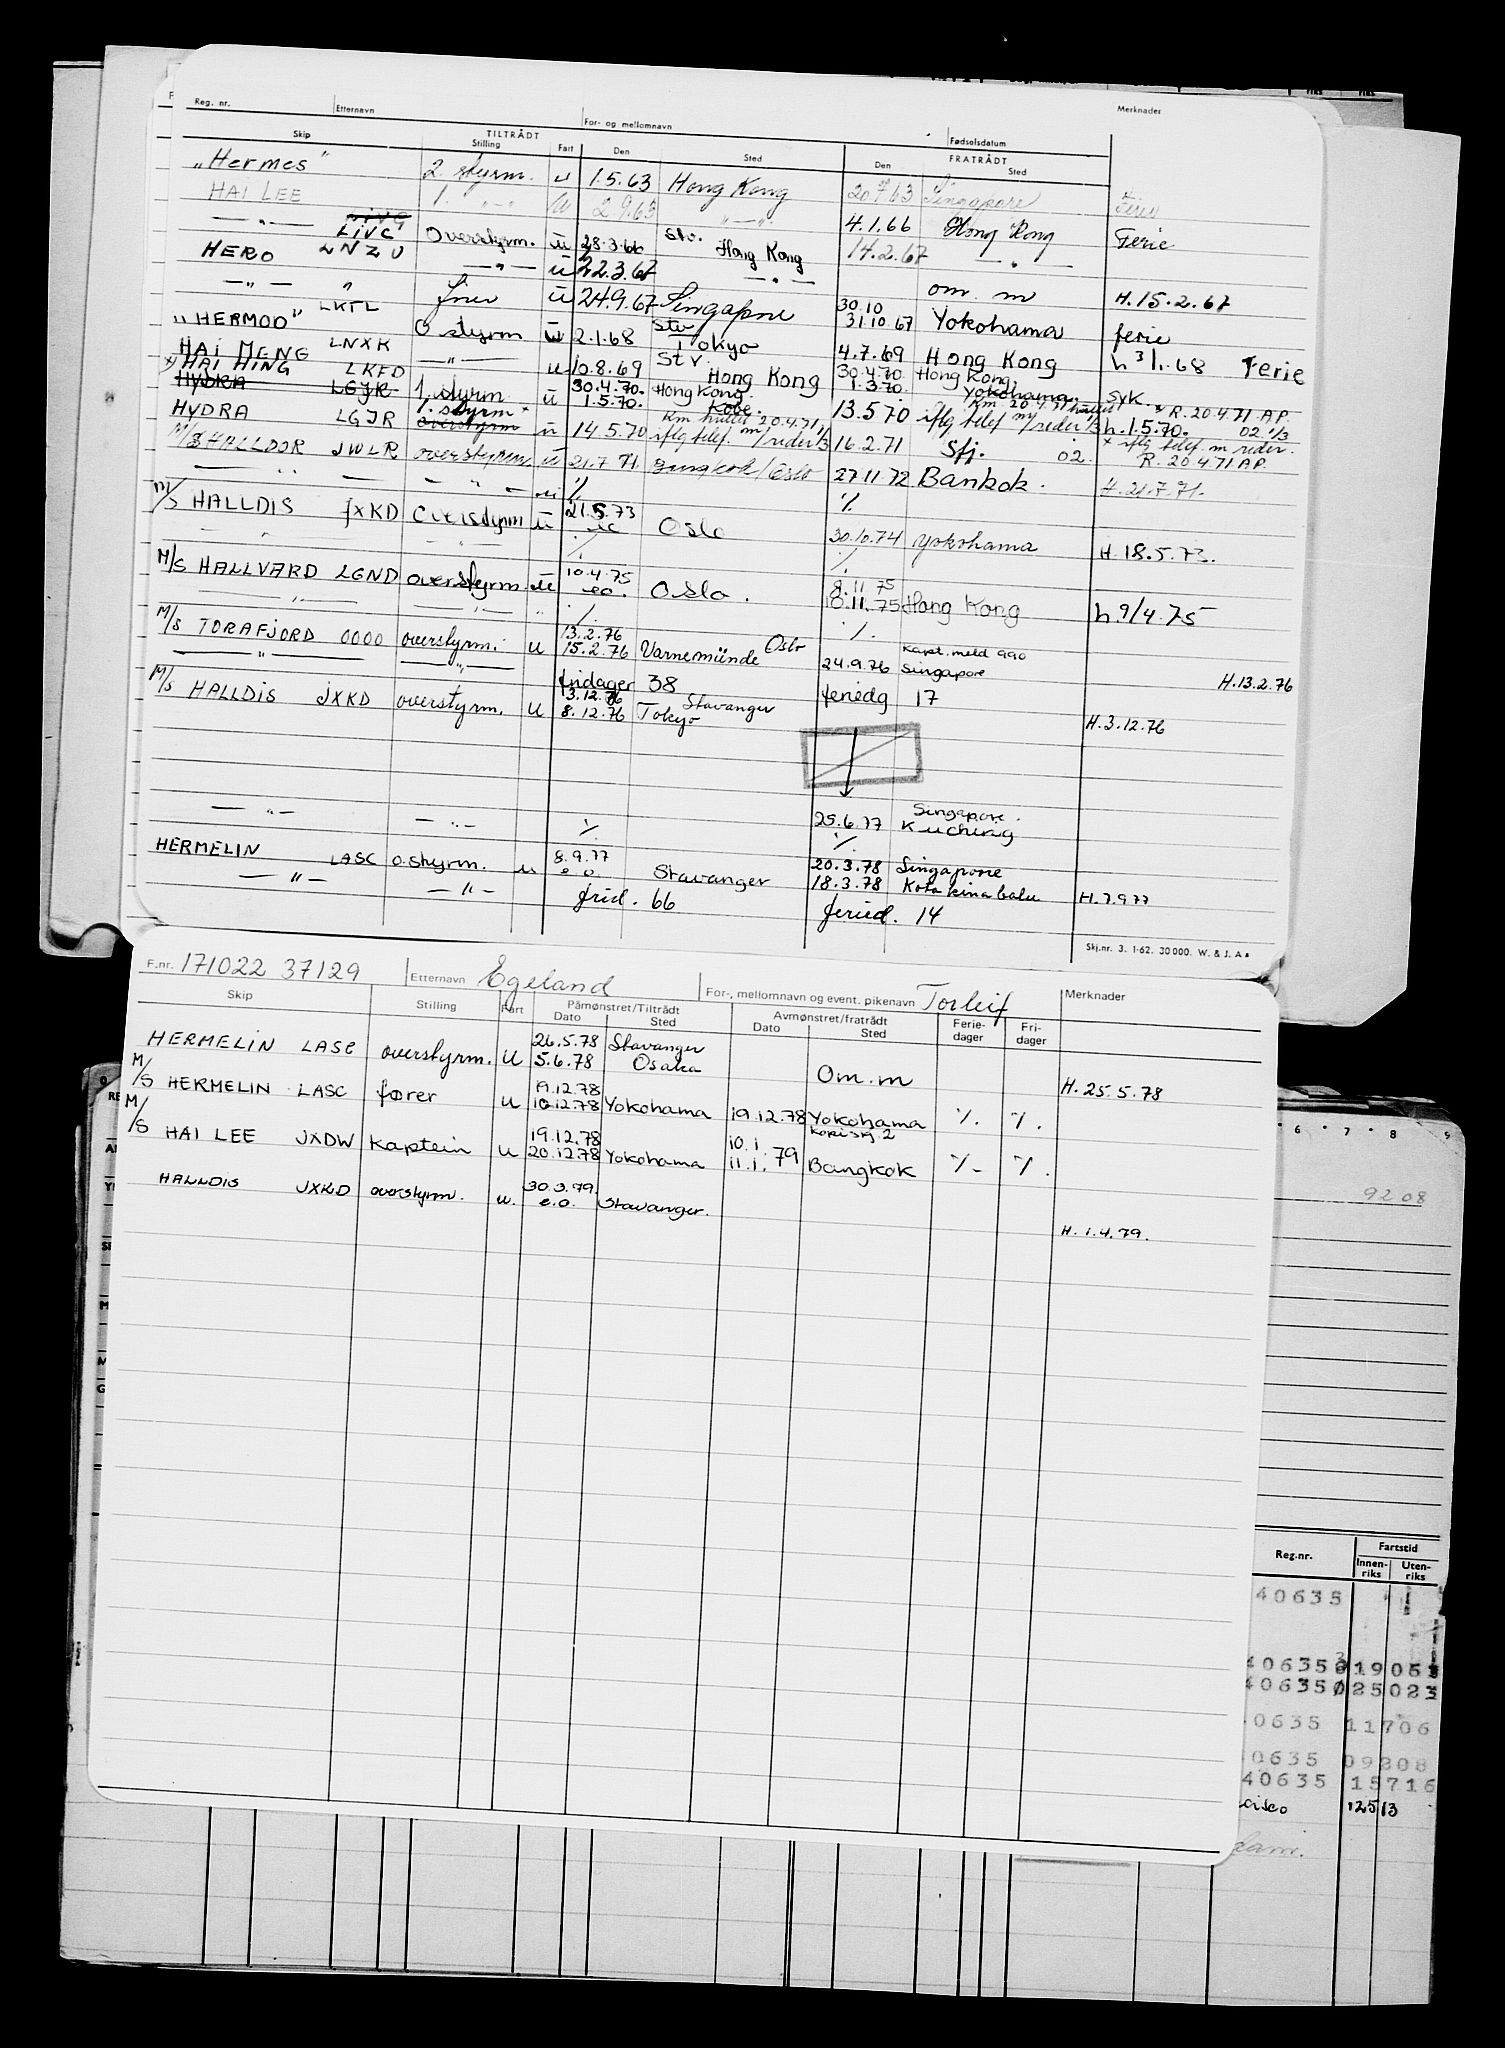 Reg. nr. Etternavn For- og mellomnavn Fødselsdatum Merknader
Skip TILTRÅDT Stilling Fart Den Sted FRATRÅDT Den Sted
"Hermes" 2. styrm. u 1.5.63 Hong Kong 20.7.63 Singapore Ferie
HAI LEE 1. -"- u 2.9.63 -"-
-"- LIVC 4.1.66 Hong Kong Ferie
LIVC Overstyrm. u 28.3.66 Stv. Hong Kong 14.2.67 -"-
HERO LNZU -"- u 22.3.67 -"- om. m H.15.2.67
-"- " fører u 24.9.67 Singapore 30.10 31.10.67 Yokohama ferie
"HERMOD" LKTL O styrm u 2.1.68 Stv Tokyo 4.7.69 Hong Kong h 3/1.68 Ferie
HAI MENG LNXK -"- u 10.8.69 Stv. Hong Kong 30.4.70 Hong Kong. syk.
x) HAI HING LKFD 1. styrm u 30.4.70. Hong Kong. 1.3.70. Yokohama. x R. 20.4.71 A.P.
HYDRA LGJR 1. styrm x 1.5.70. Kobe. 13.5.70 iflg telef m/reder 1/3 h.1.5.70. 02 1/3
HYDRA LGJR overstyrm u 14.5.70 iflg telef. m/reder 1/3 16.2.71 Sfj. 02. x iflg telef. m reder. R. 20.4.71 A.P.
M/S HALLDOR JWLR overstyrm u 21.7.71 Bangkok/Oslo 27.11.72 Bankok. H. 21.7.71.
-"- -"- u % %
M/S HALLDIS JXKD Overstyrm u 21.5.73 eo Oslo 30.10.74 Yokohama H. 18.5.73.
" " % %
M/S HALLVARD LGND overstyrm. u 10.4.75 eo. Oslo. 8.11 75 10.11.75 Hong Kong h.9/4.75
-"- -"- " % %
M/S TORAFJORD 0000 overstyrm. u 13.2.76 Oslo 15.2.76 Varnemünde 24.9.76 Kapt. meld 990 Singapore H.13.2.76
-"- -"- fridager 38 feriedg 17
M/S HALLDIS JXKD overstyrm. u 3.12.76 Stavanger 8.12.76 Tokyo H.3.12.76
-"- -"- % 25.6.77 Singapore. Kuching
%
HERMELIN LASC o.styrm. u 8.9.77 e.o. Stavanger 20.3.78 Singapore H.7.9.77
-"- -"- 18.3.78 Kota kina balu
frid. 66 feried. 14
Skj.nr. 3. 1-62. 30 000. W. & J. A s
F.nr. 171022 37129 Etternavn Egeland For-, mellomnavn og event. pikenavn Torleif Merknader
Skip Stilling Fart Påmønstret/Tiltrådt Dato Sted Avmønstret/fratrådt Dato Sted Ferie-dager Fri-dager
HERMELIN LASC overstyrm. u 26.5.78 Stavanger 5.6.78 Osaka Om. m H. 25.5.78
M/S HERMELIN LASC fører u 19.12.78 10.12.78 Yokohama 19.12.78 Yokohama %. %.
M/S HAI LEE JXDW Kaptein u 19.12.78 20.12.78 Yokohama 10.1. 11.1. 79 Kopi skj 2 Bangkok %- %.
HALLDIS JXKD overstyrm. u. 30.3.79. e.o. Stavanger. H. 1.4.79.
6 7 8 9
92 08
Reg.nr. Fartstid
Innen-riks Uten-riks
40635
40635
40635 025023
0635 11706
0635 09808
40635 15716
cisco 12513